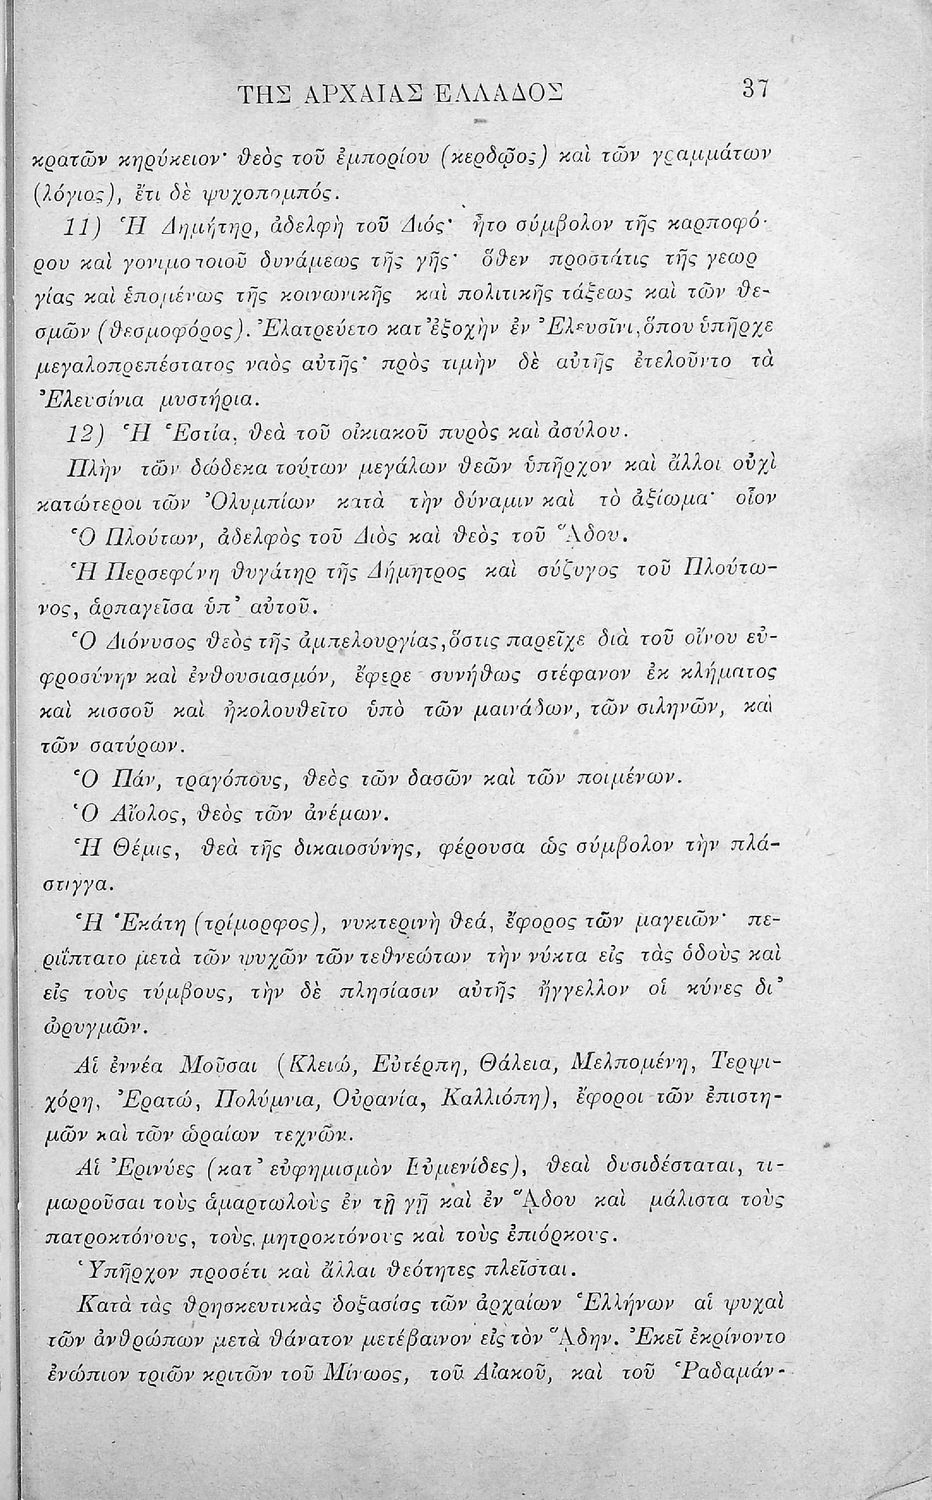 ΤΗΣ ΑΡΧΑΙΑΣ ΕΛΛΑΔΟΣ 37
κρατῶν κηρύκειον· θεὸς τοῦ ἐμπορίου (κερδῷος) καὶ τῶν γραμμάτων
(λόγιος), ἔτι δὲ ψυχοπομπός.
11) Ἡ Δημήτηρ, ἀδελφὴ τοῦ Διός· ἦτο σύμβολον τῆς καρποφό-
ρου καὶ γονιμοποιοῦ δυνάμεως τῆς γῆς· ὅθεν προστάτις τῆς γεωρ
γίας καὶ ἑπομένως τῆς κοινωνικῆς καὶ πολιτικῆς τάξεως καὶ τῶν θε-
σμῶν (θεσμοφόρος). Ἐλατρεύετο κατ' ἐξοχὴν ἐν Ἐλευσῖνι, ὅπου ὑπῆρχε
μεγαλοπρεπέστατος ναὸς αὐτῆς· πρὸς τιμὴν δὲ αὐτῆς ἐτελοῦντο τὰ
Ἐλευσίνια μυστήρια.
12) Ἡ Ἑστία, θεὰ τοῦ οἰκιακοῦ πυρὸς καὶ ἀσύλου.
Πλὴν τῶν δώδεκα τούτων μεγάλων θεῶν ὑπῆρχον καὶ ἄλλοι οὐχὶ
κατώτεροι τῶν Ὀλυμπίων κατὰ τὴν δύναμιν καὶ τὸ ἀξίωμα· οἷον
Ὁ Πλούτων, ἀδελφὸς τοῦ Διὸς καὶ θεὸς τοῦ Ἅδου.
Ἡ Περσεφόνη θυγάτηρ τῆς Δήμητρος καὶ σύζυγος τοῦ Πλούτω-
νος, ἁρπαγεῖσα ὑπ' αὐτοῦ.
Ὁ Διόνυσος θεὸς τῆς ἀμπελουργίας, ὅστις παρεῖχε διὰ τοῦ οἴνου εὐ-
φροσύνην καὶ ἐνθουσιασμόν, ἔφερε συνήθως στέφανον ἐκ κλήματος
καὶ κισσοῦ καὶ ἠκολουθεῖτο ὑπὸ τῶν μαινάδων, τῶν σιληνῶν, καὶ
τῶν σατύρων.
Ὁ Πάν, τραγόπους, θεὸς τῶν δασῶν καὶ τῶν ποιμένων.
Ὁ Αἴολος, θεὸς τῶν ἀνέμων.
Ἡ Θέμις, θεὰ τῆς δικαιοσύνης, φέρουσα ὡς σύμβολον τὴν πλά-
στιγγα.
Ἡ Ἑκάτη (τρίμορφος), νυκτερινὴ θεά, ἔφορος τῶν μαγειῶν· πε-
ριΐπτατο μετὰ τῶν ψυχῶν τῶν τεθνεώτων τὴν νύκτα εἰς τὰς ὁδοὺς καὶ
εἰς τοὺς τύμβους, τὴν δὲ πλησίασιν αὐτῆς ἤγγελλον οἱ κύνες δι'
ὠρυγμῶν.
Αἱ ἐννέα Μοῦσαι (Κλειώ, Εὐτέρπη, Θάλεια, Μελπομένη, Τερψι-
χόρη, Ἐρατώ, Πολύμνια, Οὐρανία, Καλλιόπη), ἔφοροι τῶν ἐπιστη-
μῶν καὶ τῶν ὡραίων τεχνῶν.
Αἱ Ἐρινύες (κατ' εὐφημισμὸν Εὐμενίδες), θεαὶ δυσιδέσταται, τι-
μωροῦσαι τοὺς ἁμαρτωλοὺς ἐν τῇ γῇ καὶ ἐν Ἅδου καὶ μάλιστα τοὺς
πατροκτόνους, τοὺς μητροκτόνους καὶ τοὺς ἐπιόρκους.
Ὑπῆρχον προσέτι καὶ ἄλλαι θεότητες πλεῖσται.
Κατὰ τὰς θρησκευτικὰς δοξασίας τῶν ἀρχαίων Ἑλλήνων αἱ ψυχαὶ
τῶν ἀνθρώπων μετὰ θάνατον μετέβαινον εἰς τὸν Ἅδην. Ἐκεῖ ἐκρίνοντο
ἐνώπιον τριῶν κριτῶν τοῦ Μίνωος, τοῦ Αἰακοῦ, καὶ τοῦ Ῥαδαμάν-